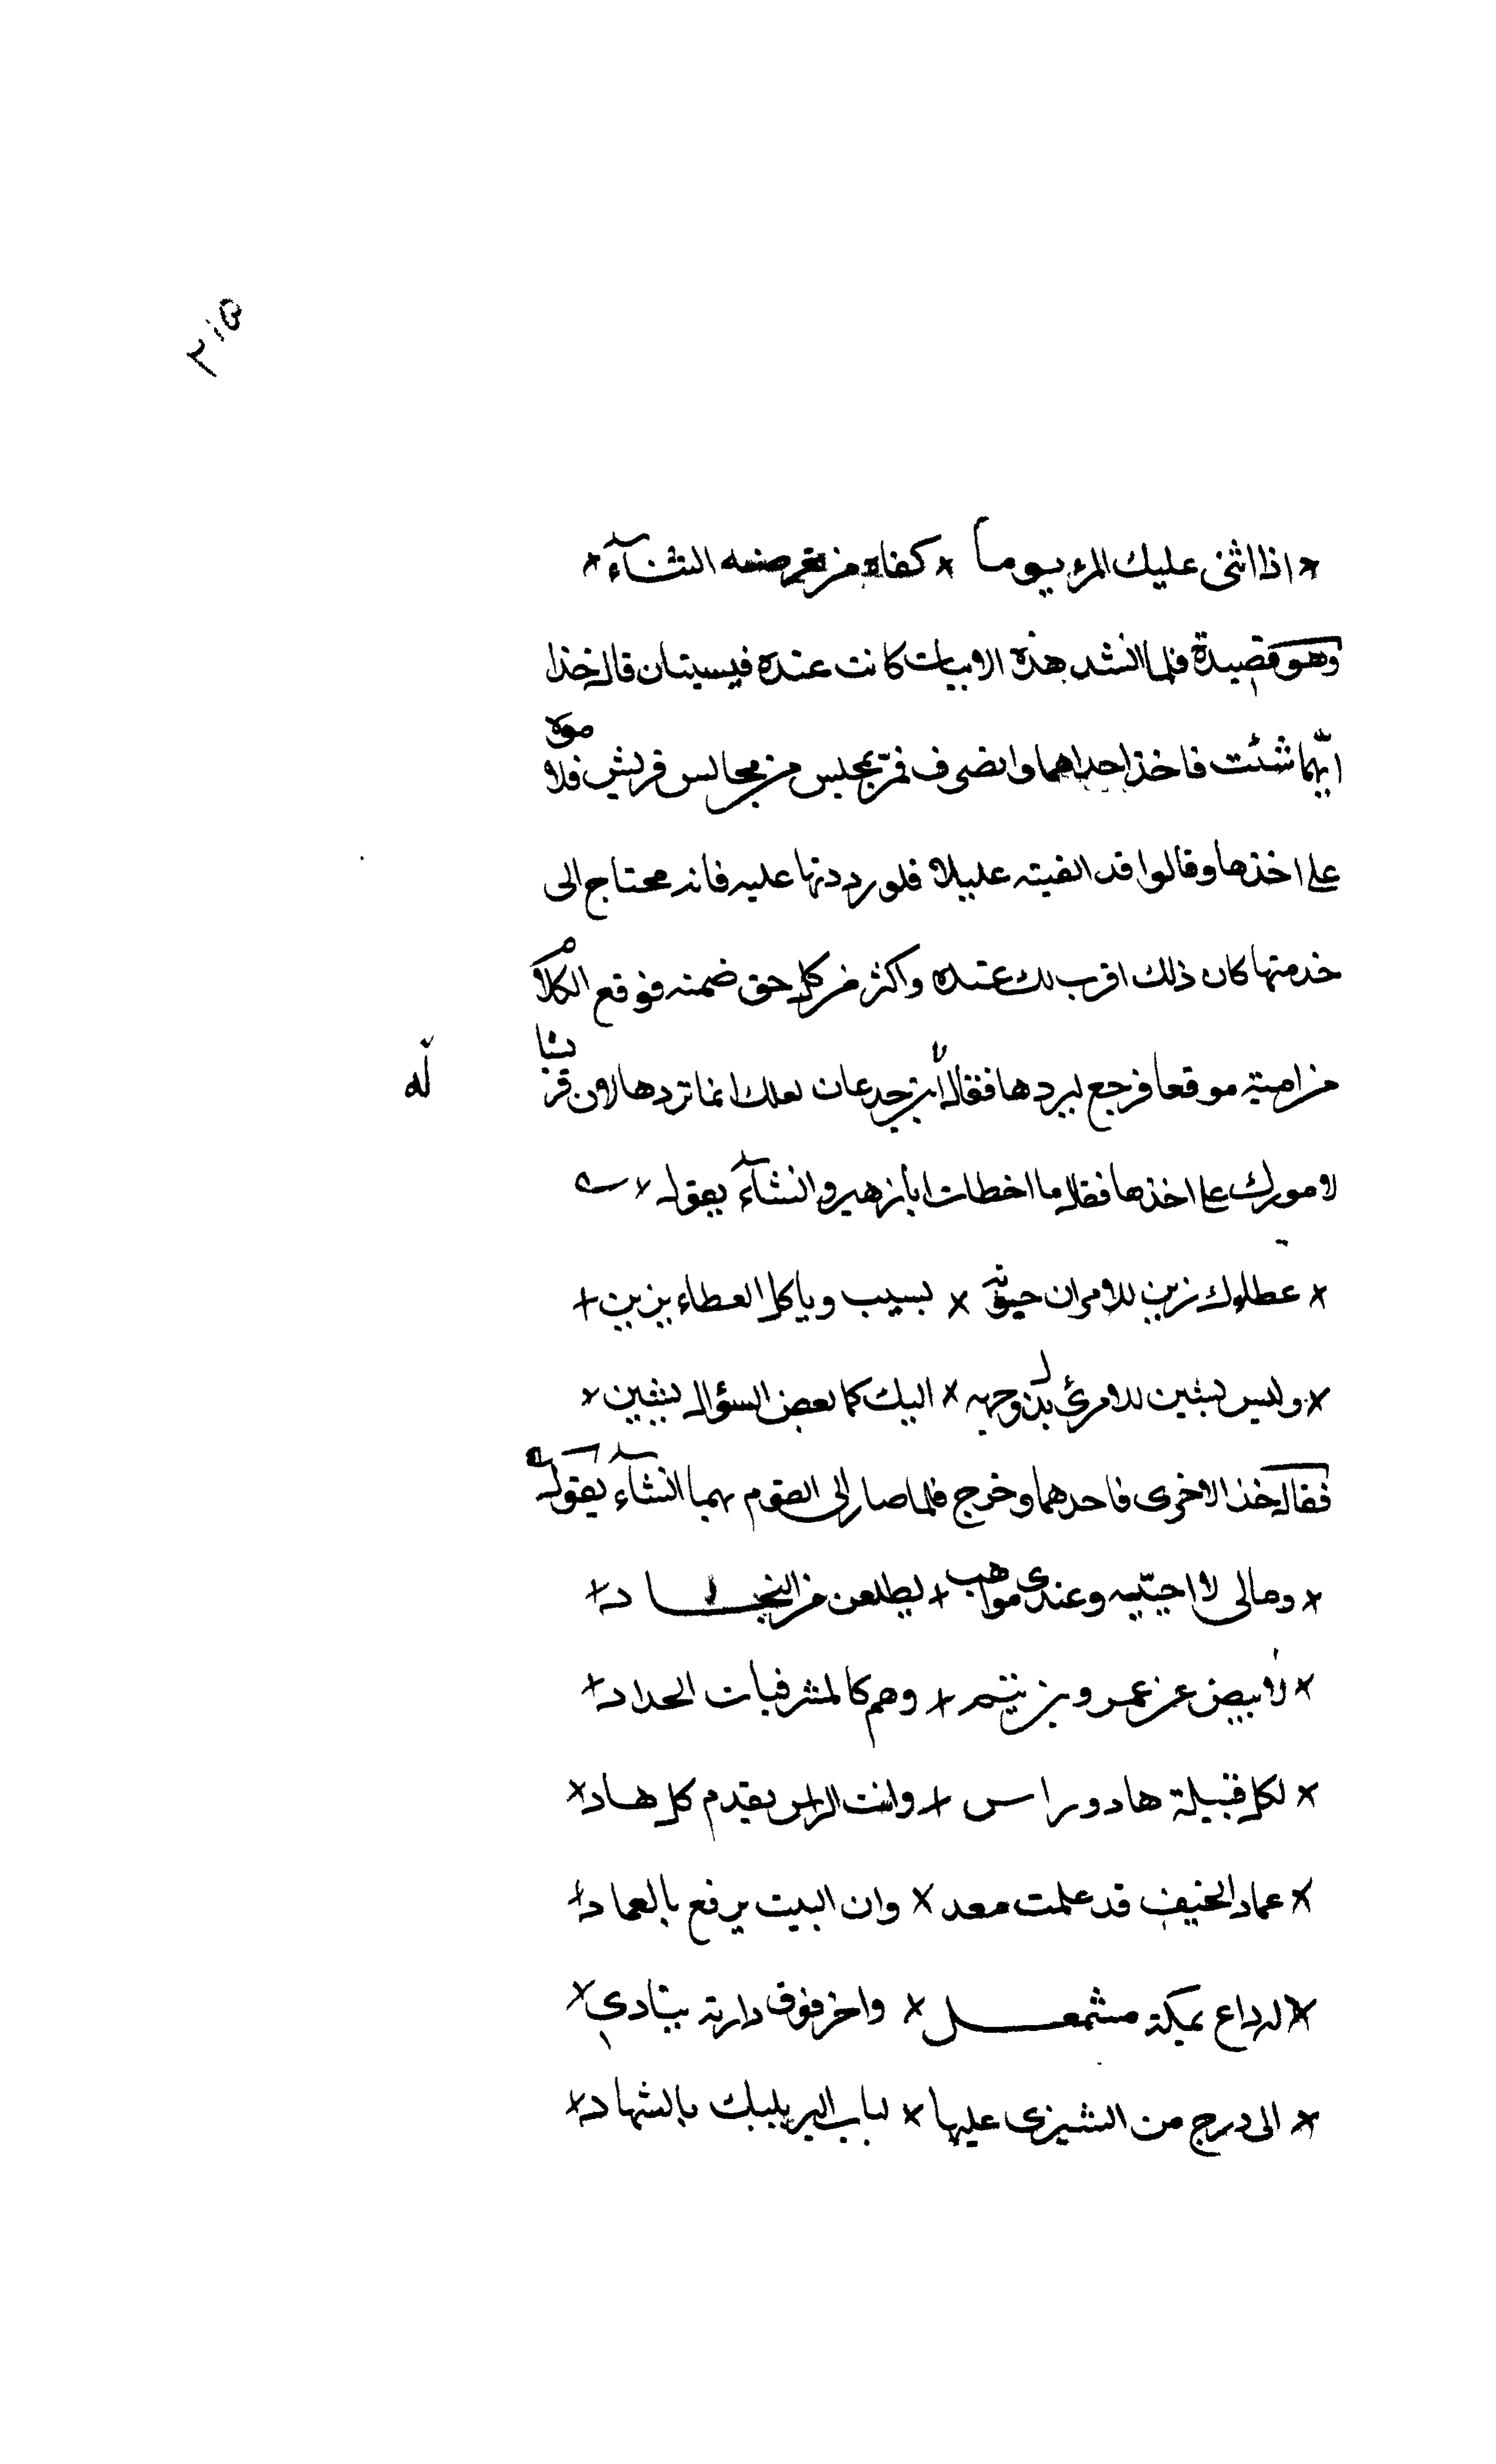 ٢١٥
* اذا اثنى عليك المرء يوما * كفاه من تعرضه الثنآء *
وهو قصيدة فلما انشد هذه الابيات كانت عنده قيسيتان قال خذا
ايّهما شئت فاخذ احداهما وانصرف فمرّ بمجلس من مجالس قريش فلاموه
على اخذها وقالوا قد الفيته عليلا فلو رددتها عليه فانه محتاج الى
خدمتها كان ذلك اقرب لك عنده واكثر من كل حق ضمنه فوقع الكلام
من امية موقعا فرجع ليردها فقال ابن جدعان لعلك انما تردها لان قريشا
له
لاموك على اخذها فقال ما اخطات ابا زهير وانشآء يقول
* عطاوك زين للامرئ ان حبوته * بسيب وما كل العطاء يزين *
* وليس بشين للامرئ بذل وجهه * اليك كما بعض السؤال يشين *
فقال خذ الاخرى فاخذهما وخرج فلما صار الى القوم بهما انشآء يقول
* ومالى لا احيّيه وعندى مواهب * يطلعن من النجاد *
* لابيض عن عمرو بن تيم * وهم كالمشرفيات الحداد *
* لكل قبيلة هاد وراس * وانت الراس يقدم كل هاد *
* عماد الخيف قد علمت معد * وان البيت يرفع بالعماد *
* له داع بمكة مشمعل * واخر فوق دارته ينادي *
* الى درج من الشيزى عليها * لباب البر يلبك بالشهاد *